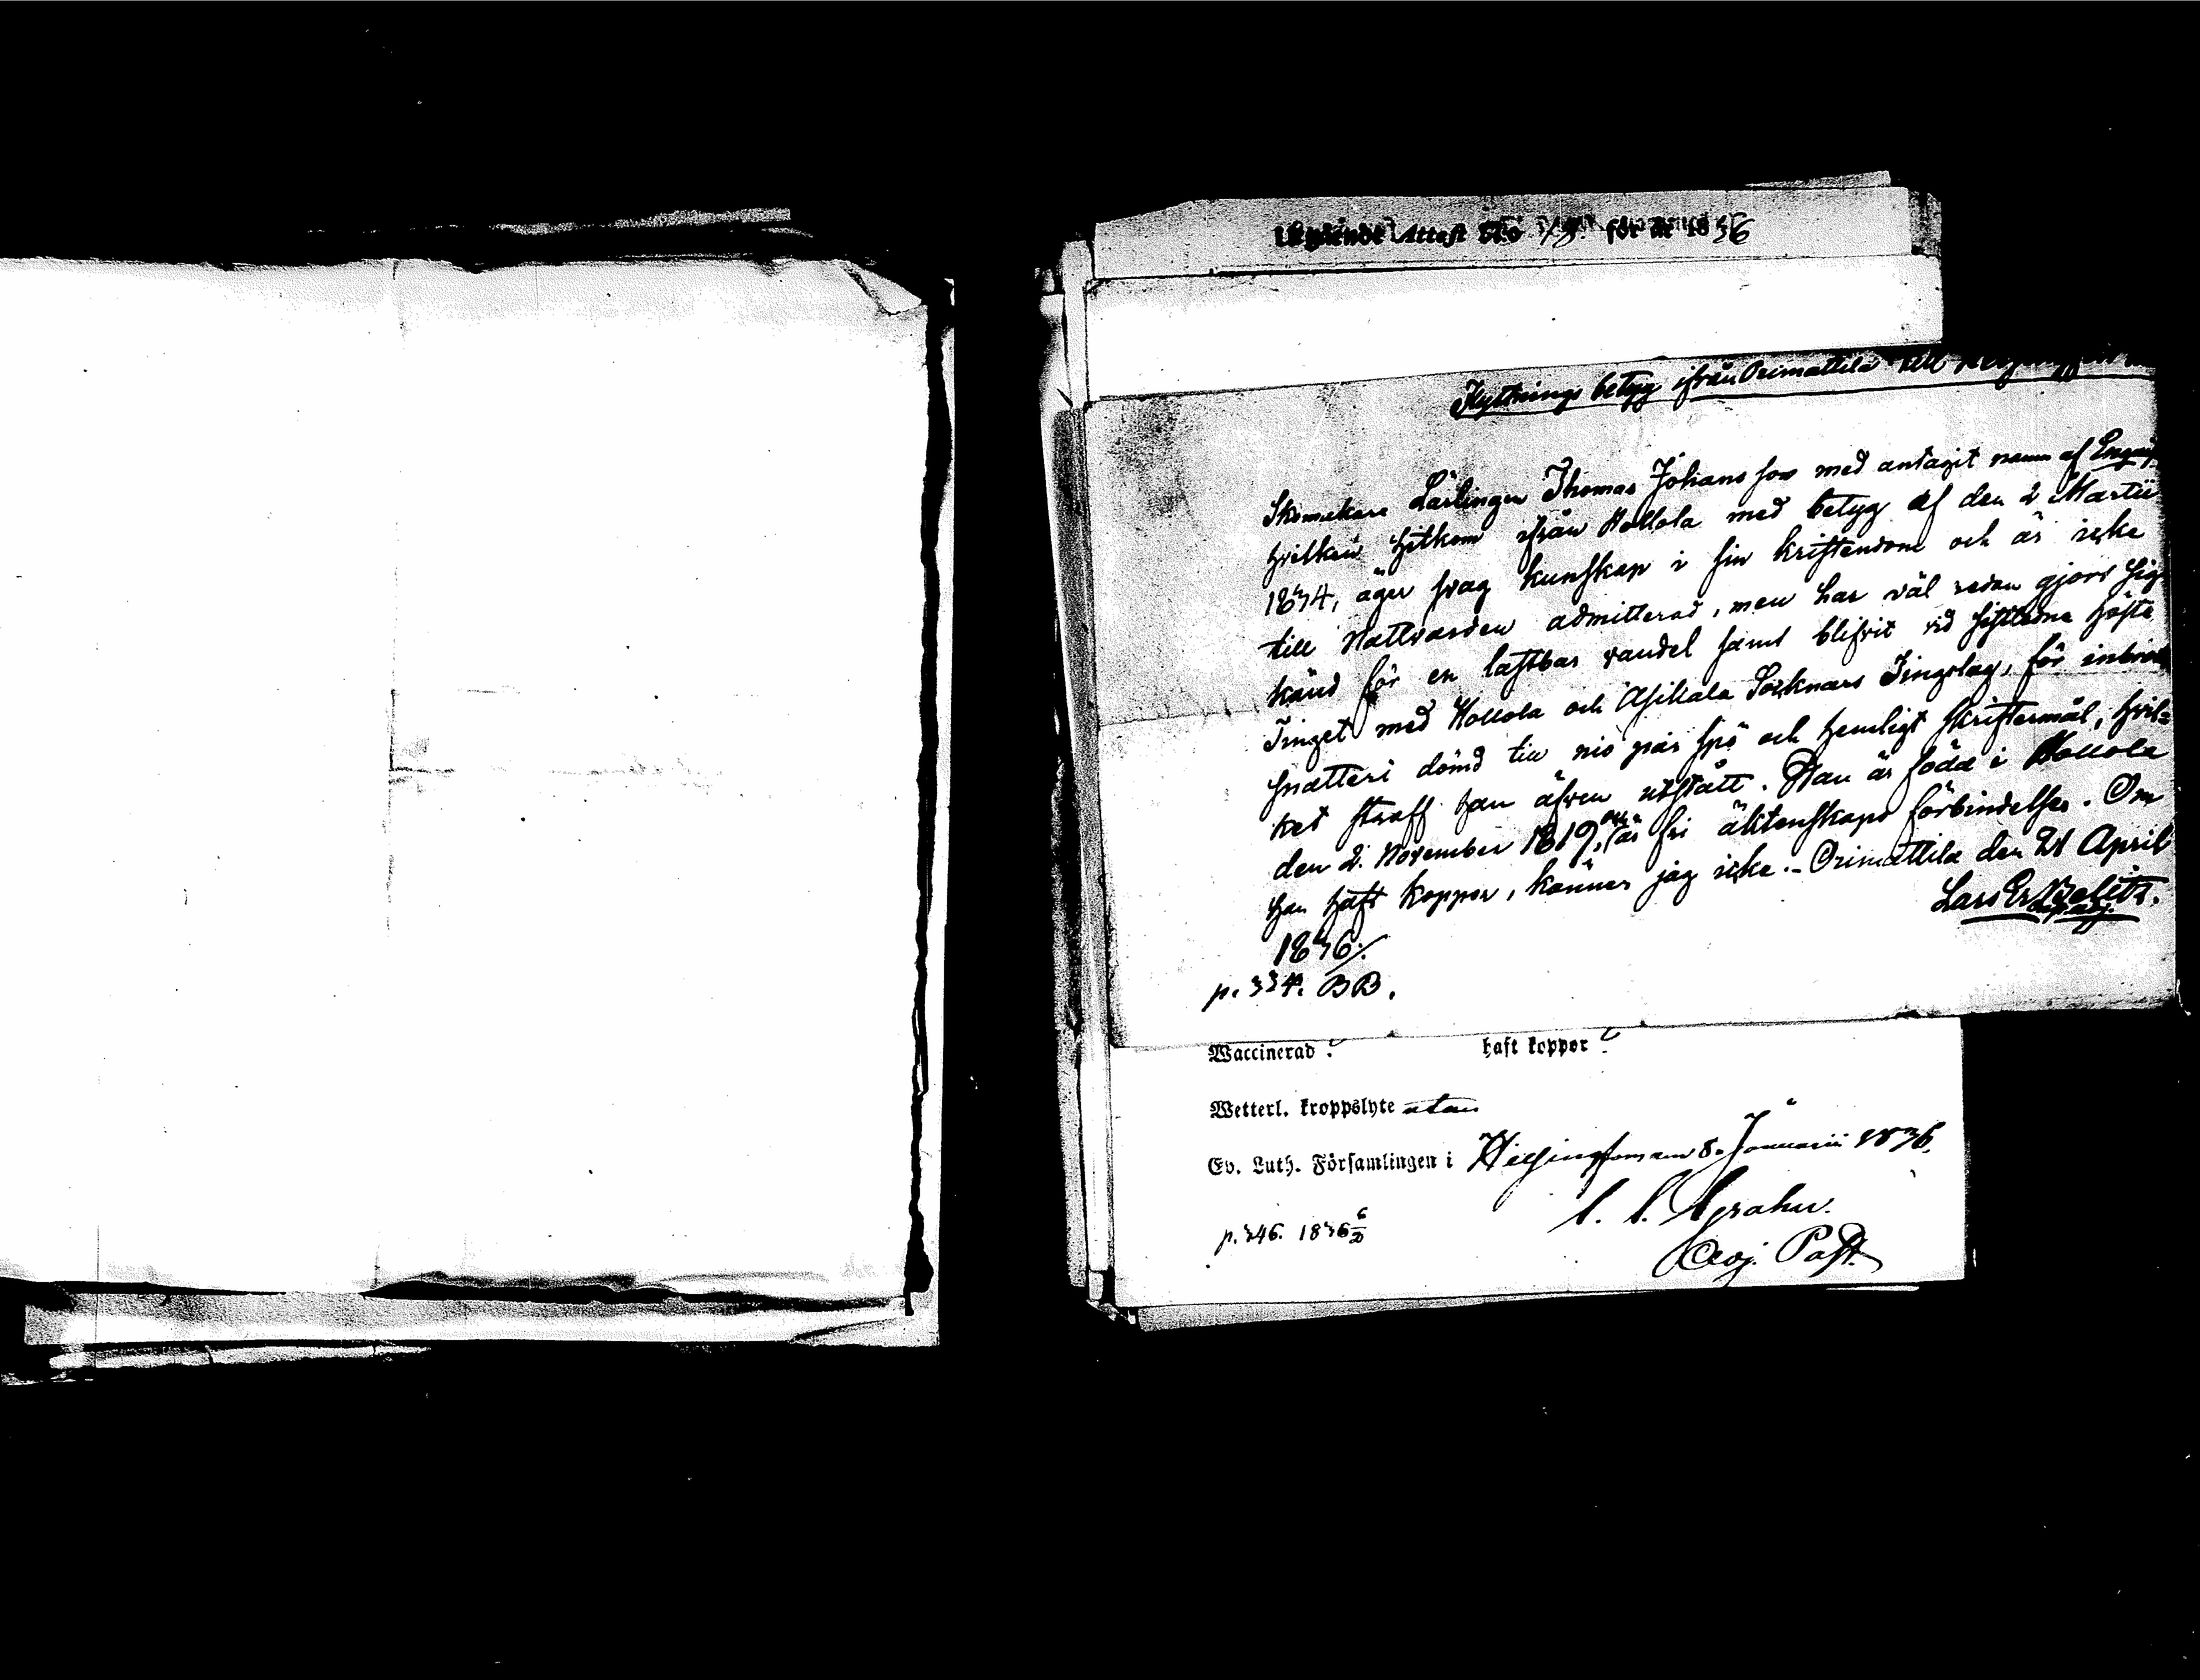 Attest No för år 1836
Flyttnings betyg ifrån Orimattila till
Skomakare Lärlingen Thomas Johansson med antagit namn af
hvilken hitkom ifrån Hollola med betyg af den 2 Martii
1834, äger svag kunskap i sin kristendom och är icke
till Nattvarden admitterad, men har väl redan gjort sig
känd för en lastbar vandel samt blifvit vid sistledne höste
Tinget med Hollola och Asikala Socknars Tingslag, för inbrott
snatteri dömd till nio par spö och hemligt skriftermål, hvil=
ket straff han äfven utstått. Han är född i Hollola
den 2. November 1819, och är fri äktenskaps förbindelser. Om
han haft koppor, känner jag icke. - Orimattila den 21 April
1836./.
Lars Er.
p. 334. BB.
Waccinerad ? haft koppor ?
Wetterl. kroppslyte utan
Ev. Luth. Församlingen i Helsingfors den 8. Januarii 1836.
Grahn.
p. 346. 1836
Adj. Past.